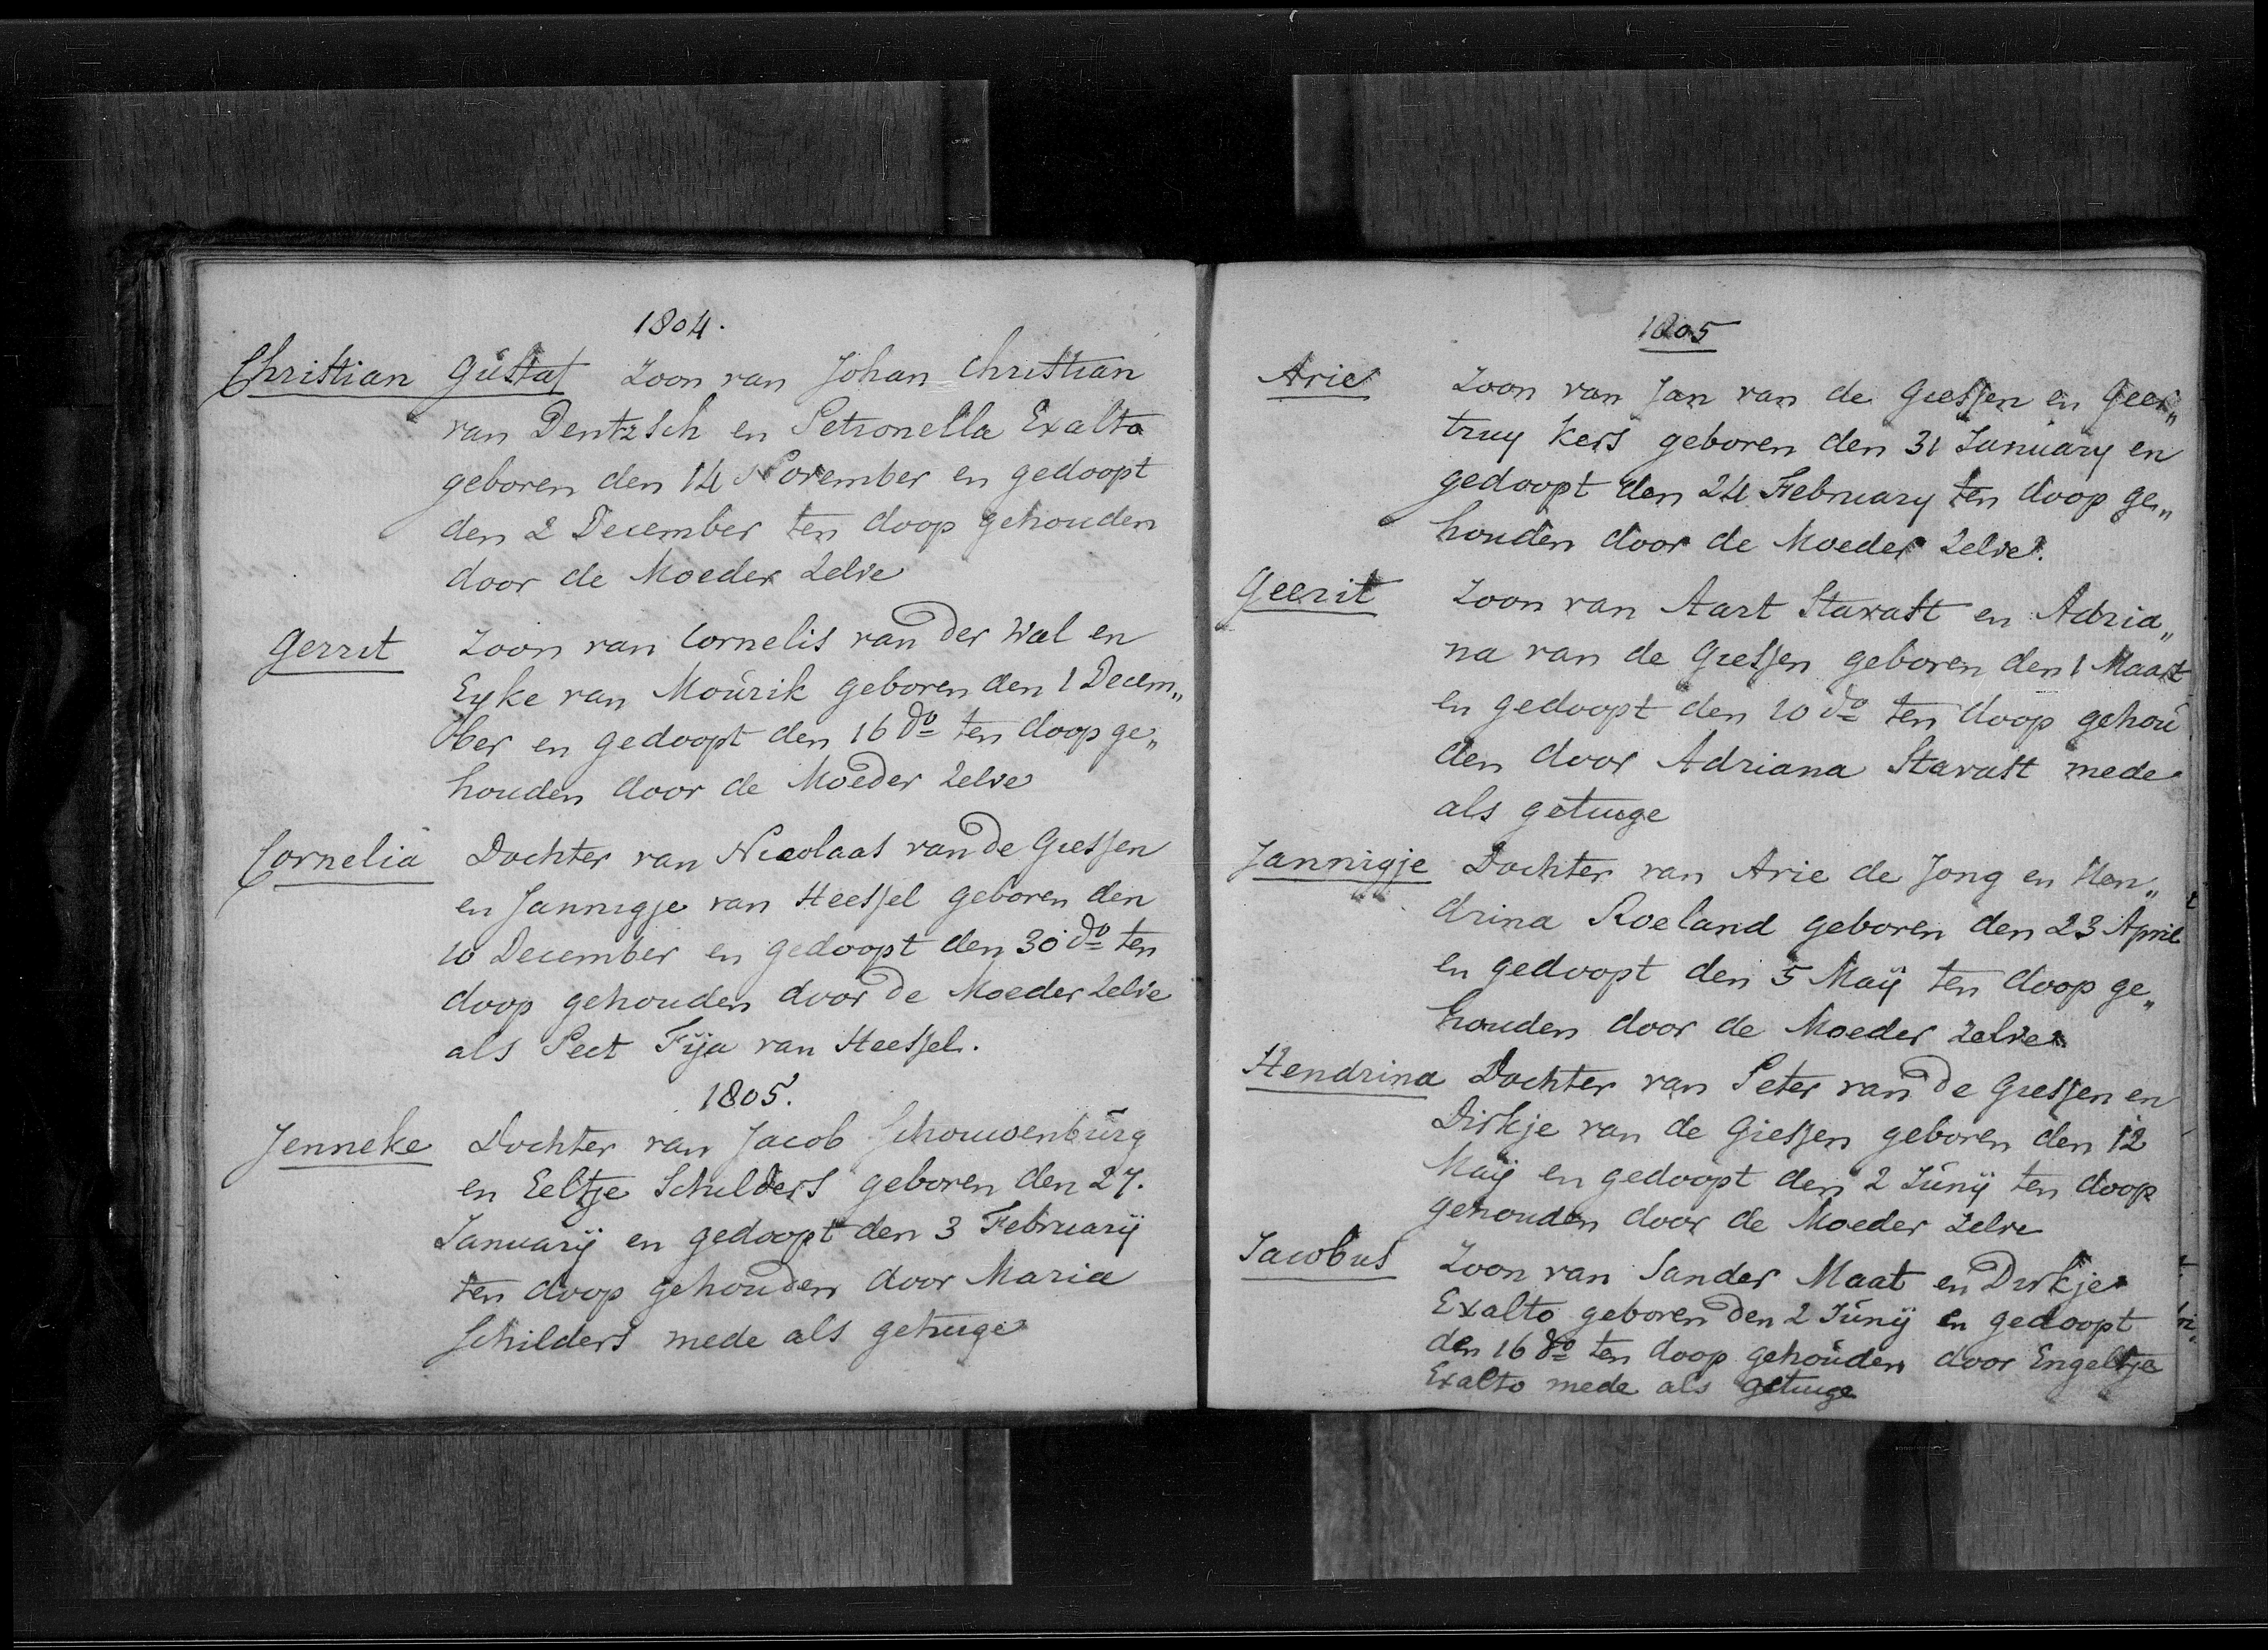 1804.
Christian Gústaf Zoon van Johan Christian
van Dentzsch en Petronella Exalto
geboren den 14 November en gedoopt
den 2 December ten doop gehouden
door de Moeder zelve
Gerrit Zoon van Cornelis van der Wal en
Eyke van Moúrik geboren den 1 Decem„
ber en gedoopt den 16 do ten doop ge„
houden door de Moeder zelve
Cornelia Dochter van Nicolaas van de Giessen
en Jannigje van Heessel geboren den
10 December en gedoopt den 30 do ten
doop gehouden door de Moeder zelve
als Peet Fija van Heessel.
1805.
Jenneke Dochter van Jacob Schouwenbúrg
en Eeltje Schilders geboren den 27.
Januarij en gedoopt den 3 Februarij
ten doop gehouden door Maria
Schilders mede als getuige
1805
Arie Zoon van Jan van de Giessen en Geer„
truy Kers geboren den 31 January en
gedoopt den 24 February ten doop ge„
houden door de Moeder zelve.
Geerit Zoon van Aart Stavast en Adria„
na van de Giessen geboren den 1 Maart
en gedoopt den 10 do ten doop gehoú
den door Adriana Stavast mede
als getuige
Jannigje Dochter van Arie de Jong en Hen„
drina Roeland geboren den 23 April
en gedoopt den 5 Maij ten doop ge„
houden door de Moeder zelve
Hendrina Dochter van Peter van de Giessen en
Dirkje van de Giessen geboren den 12
Maij en gedoopt den 2 Júnij ten doop
gehouden door de Moeder zelve
Jacobus Zoon van Sander Maat en Dirkje
Exalto geboren den 2 Júnij en gedoopt
den 16 do ten doop gehoúden door Engeltje
Exalto mede als getuige